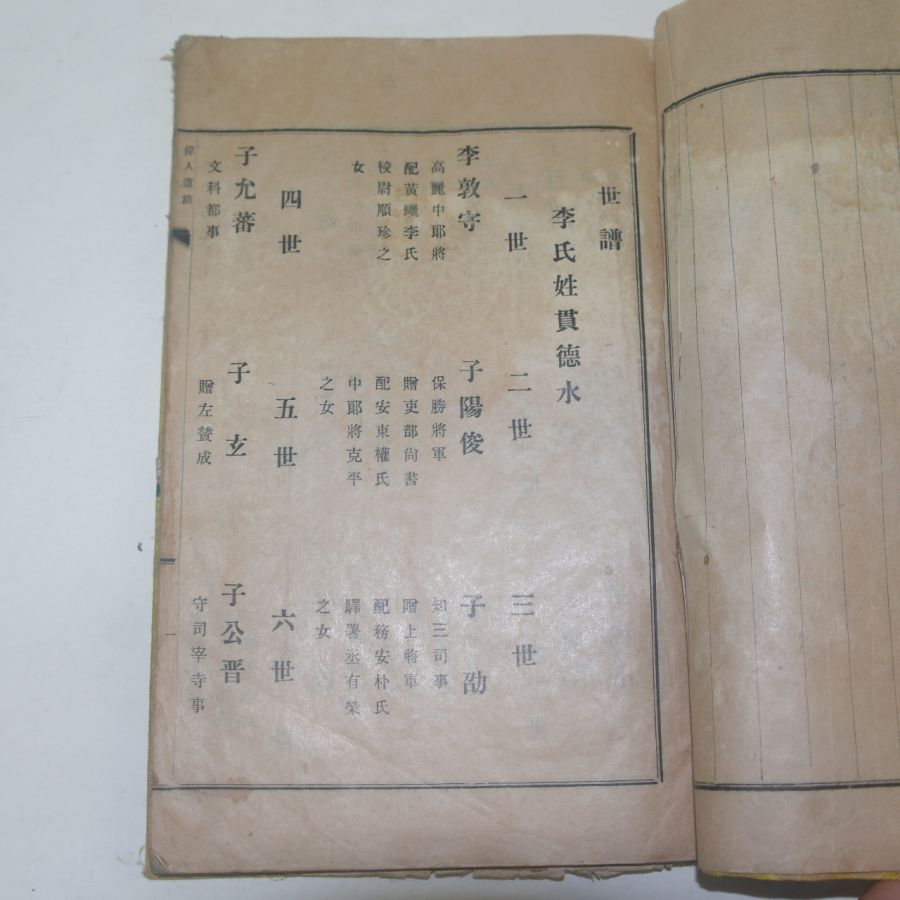 世譜
李氏姓貫德水
一世 二世 三世
李敦守 子陽俊 子劭
高麗中郞將 保勝將軍 知三司事
配黃驪李氏 贈吏部尙書 贈上將軍
校尉順珍之 配安東權氏 配務安朴氏
女 中郞將克平 驛署丞有榮
之女 之女
四世 五世 六世
子允蕃 子玄 子公晋
文科都事 贈左贊成 守司宰寺事
偉人遺蹟
一